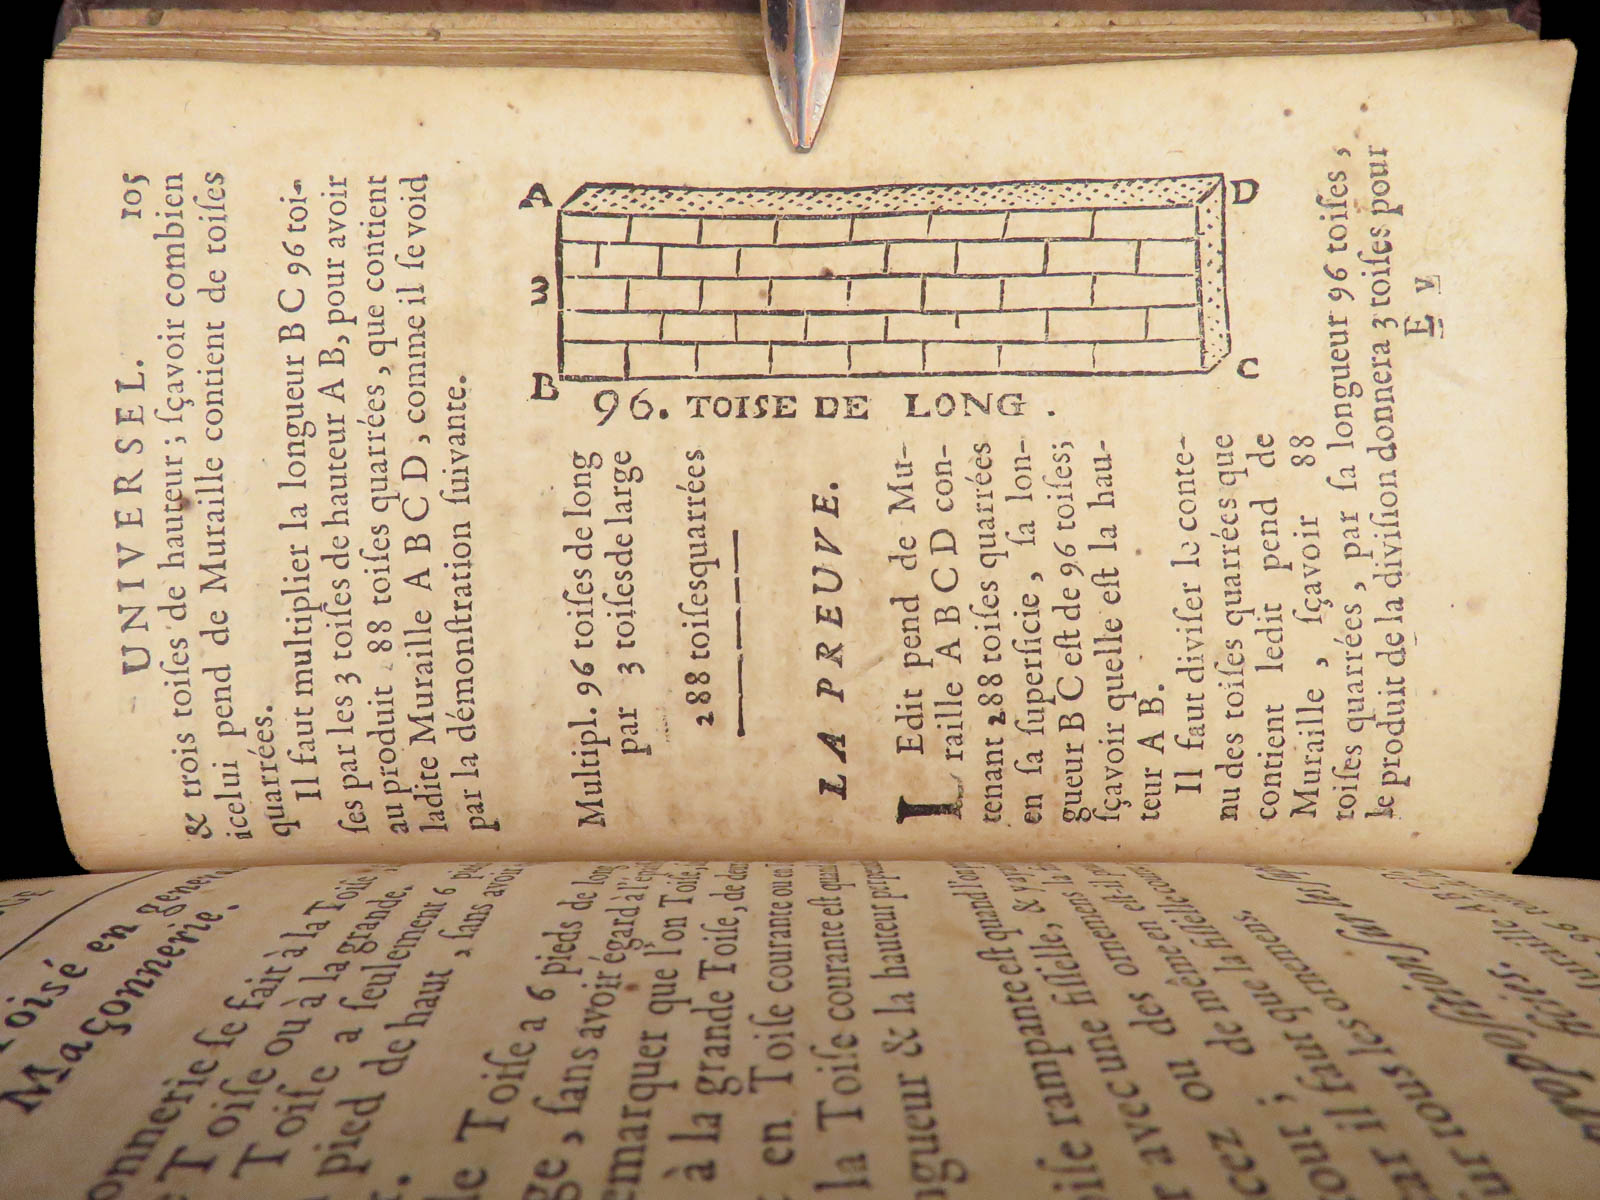 UNIVERSEL. 105
& trois toiſes de hauteur ; ſçavoir combien
icelui pend de Muraille contient de toiſes
quarrées.
Il faut multiplier la longueur B C 96 toi-
ſes par les 3 toiſes de hauteur A B, pour avoir
au produit 288 toiſes quarrées, que contient
ladite Muraille A B C D, comme il ſe void
par la démonſtration ſuivante.
A
D
3
B
C
96. TOISE DE LONG.
Multipl. 96 toiſes de long
par 3 toiſes de large
288 toiſes quarrées
LA PREUVE.
LEdit pend de Mu-
raille A B C D con-
tenant 288 toiſes quarrées
en ſa ſuperficie, ſa lon-
gueur B C eſt de 96 toiſes;
ſçavoir quelle eſt la hau-
teur A B.
Il faut diviſer le conte-
nu des toiſes quarrées que
contient ledit pend de
Muraille, ſçavoir 88
toiſes quarrées, par ſa longueur 96 toiſes,
le produit de la diviſion donnera 3 toiſes pour
E v
Toiſé en gener
Maçonnerie.
onnerie ſe fait à la Toiſe
Toiſe ou à la grande.
Toiſe a ſeulement 6
pied de haut, ſans avoir
de Toiſe a 6 pieds de long
ge, ſans avoir égard à l'
emarquer que l'on Toiſe,
à la grande Toiſe, de
en Toiſe courante ou en
la Toiſe courante eſt quand
ngueur & la hauteur
oiſe rampante eſt quand
avec une fiſſelle, &
ou des ornemens
cez ou de même en
tour ; de la fiſſelle
ar il faut que les
ur tous les ornemens.
opoſition ſur les